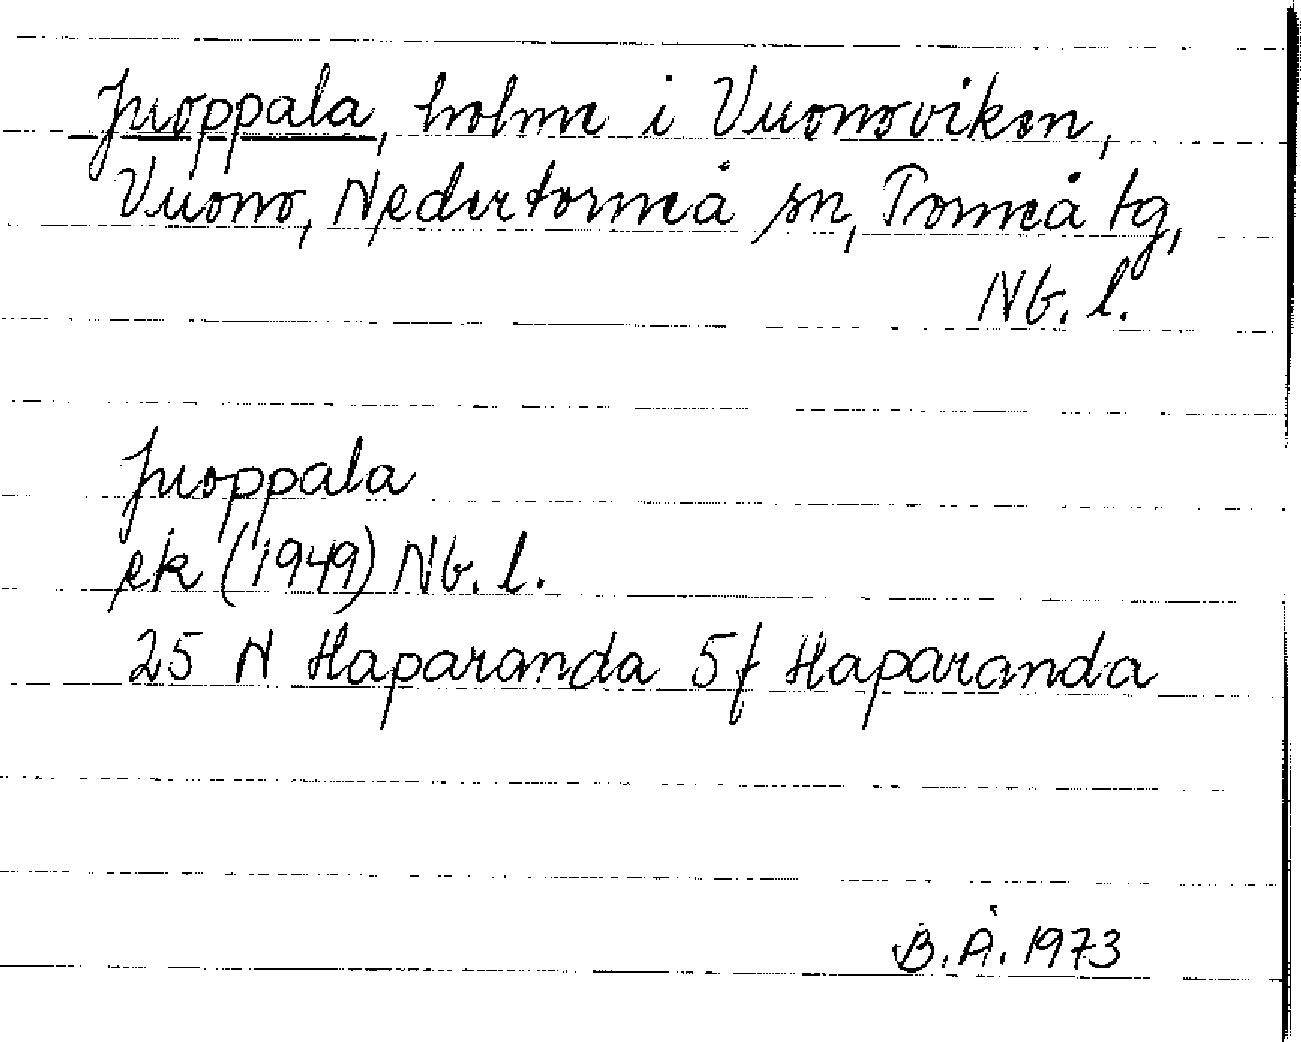 Juoppala, holme i Vuonoviken,
Vuono, Nedertorneå sn, Torneå tg,
Nb. l.
Juoppala
ek (1949) Nb. l.
25 N Haparanda 5f Haparanda
B.Å. 1973